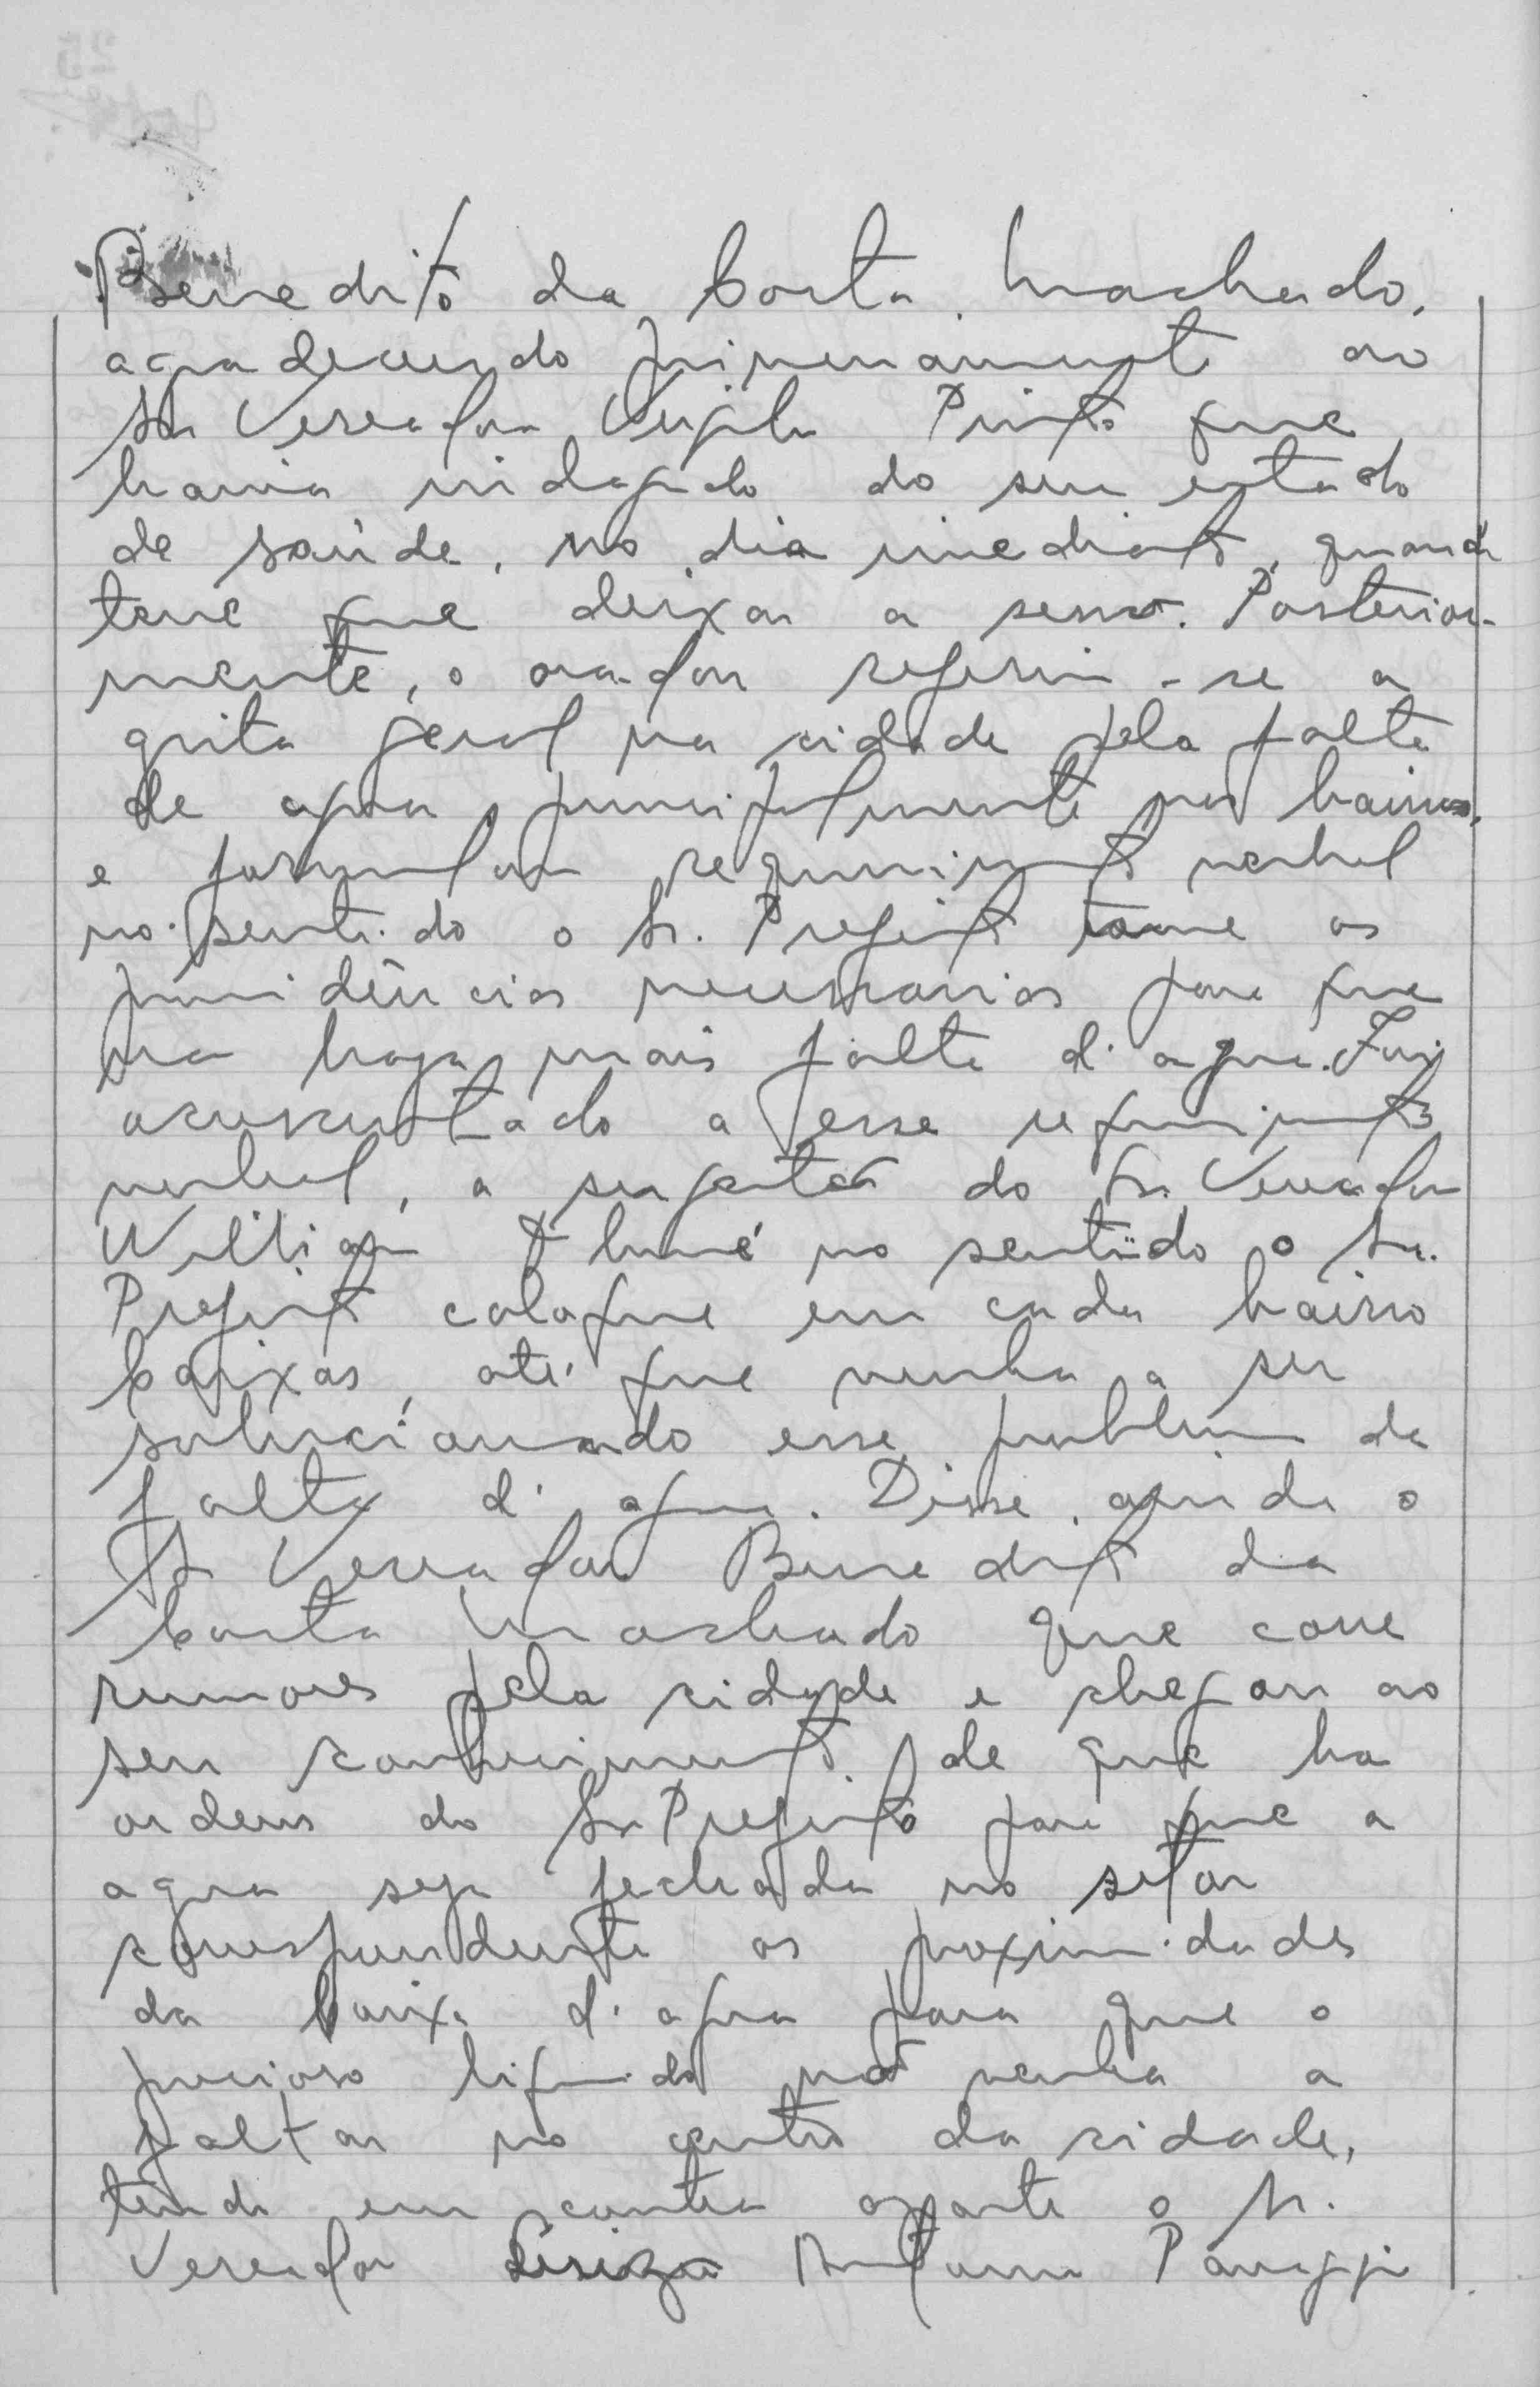 Benedito da Costa Machado,
agradecendo primeiramente ao
Sr Vereador Virgilio Pinto que
havia indagado do seu estado
de saúde, no dia imediato, quando
teve que deixar a sessão. Posterior-
mente, o orador referiu-se a
grita geral na cidade pela falta
de agua, principalmente nos bairros,
e formulou requerimento verbal
no sentido o Sr. Prefeito tome as
providências necessarias para que
não haja mais falta d'agua. Foi
acrescentado a esse requerimento
verbal, a sugestão do Sr. Vereador
Willian no sentido o Sr.
Prefeito coloque em cada bairro
caixas, até que venha a ser
solucionado esse problema da
falta d'agua. Disse, ainda o
Sr Vereador Benedito da
Costa Machado que corre
rumores pela cidade e chegou ao
seu conhecimento, de que ha
ordens do Sr Prefeito para que a
agua seja fechada no setor
correspondente as proximidades
da Caixa d'agua para que o
precioso liquido não venha a
faltar no centro da cidade,
tendo em contra aparte o Sr.
Vereador